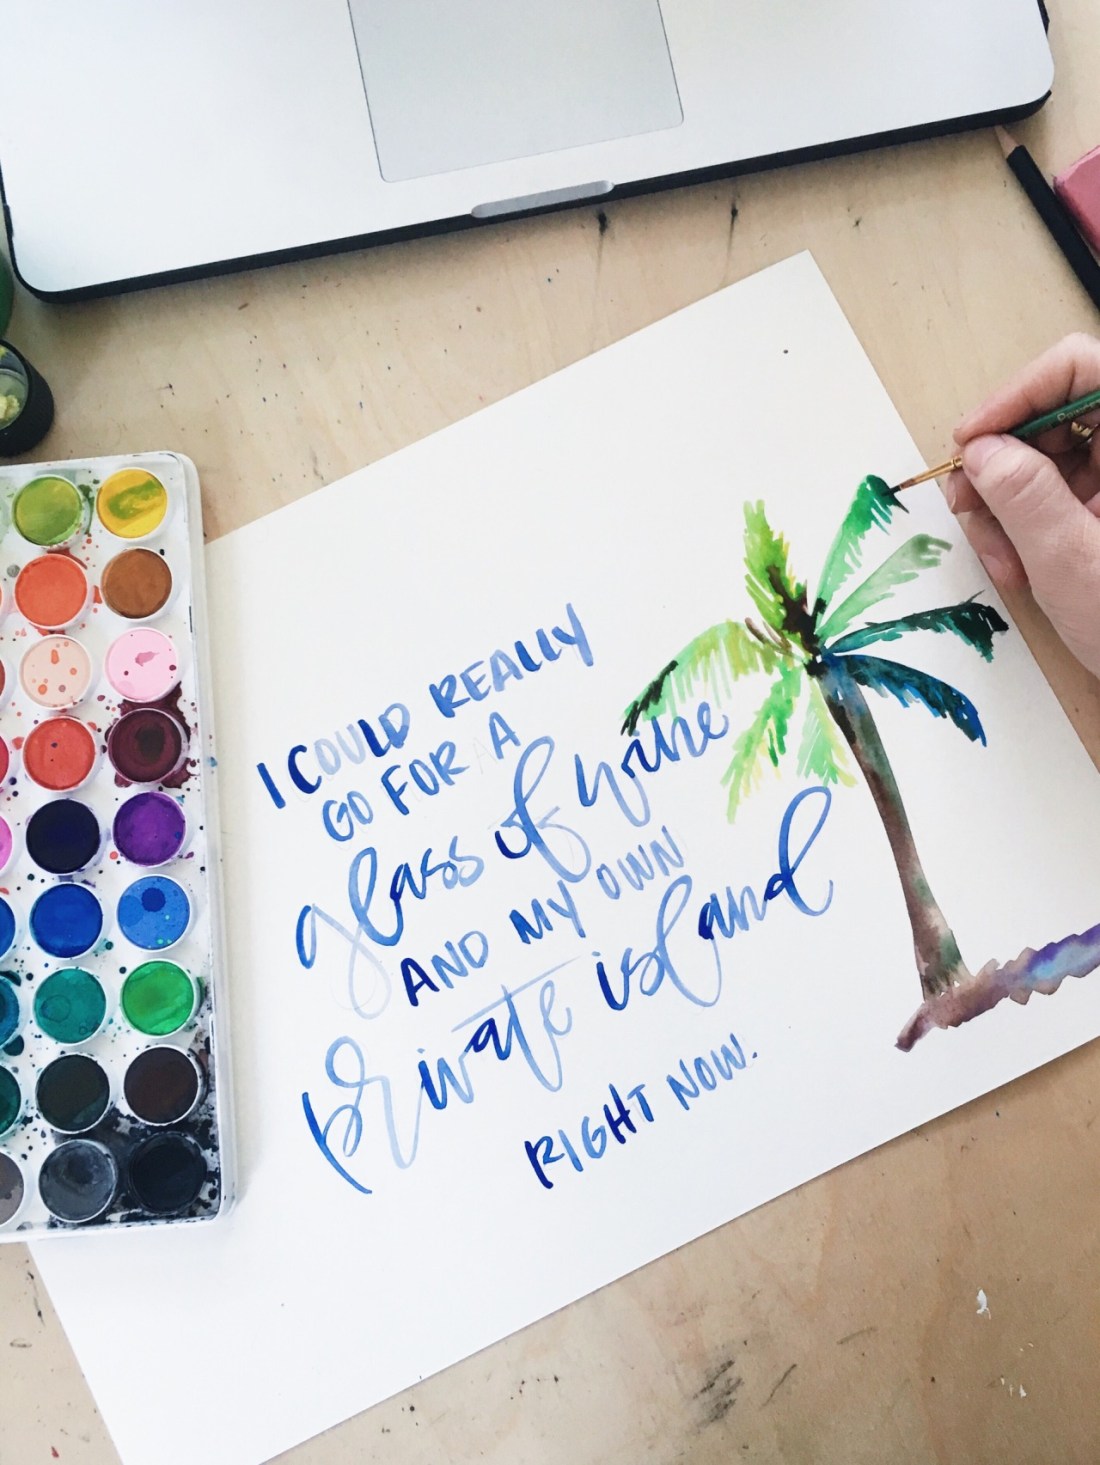 I COULD REALLY
GO FOR A
glass of wine
AND MY OWN
private island
RIGHT NOW.